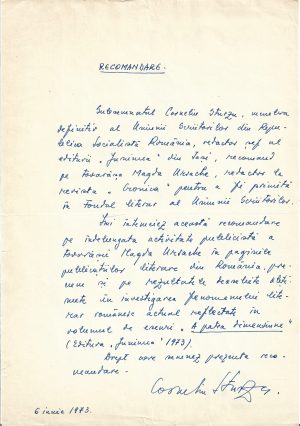 RECOMANDARE.
Subsemnatul Corneliu Sturzu, membru
definitiv al Uniunii Scriitorilor din Repu-
blica Socialistă România, redactor șef al
editurii „Junimea" din Iași, recomand
pe tovarășa Magda Ursache, redactor la
revista „Cronica" pentru a fi primită
în Fondul literar al Uniunii Scriitorilor.
Îmi întemeiez această recomandare
pe îndelungata activitate publicistică a
tovarășei Magda Ursache în paginile
publicațiilor literare din România, pre-
cum și pe rezultatele deosebite obți-
nute în investigarea fenomenului lite-
rar românesc actual reflectate în
volumul de eseuri „A patra dimensiune"
(Editura „Junimea" 1973).
Drept care semnez prezenta reco-
mandare.
Corneliu Sturzu
6 iunie 1973.